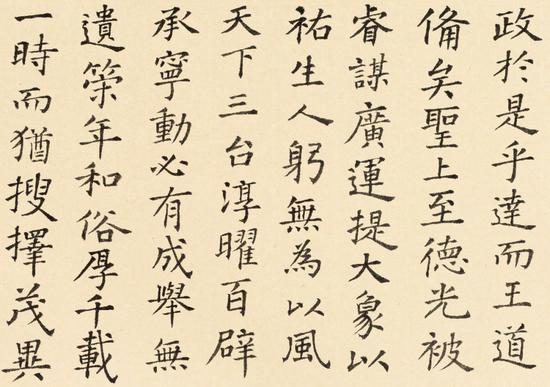 政於是乎達而王道
備矣聖上至德光被
睿謀廣運提大象以
祐生人躬無為以風
天下三台淳曜百辟
承寧動必有成舉無
遺策年和俗厚千載
一時而猶搜擇茂異